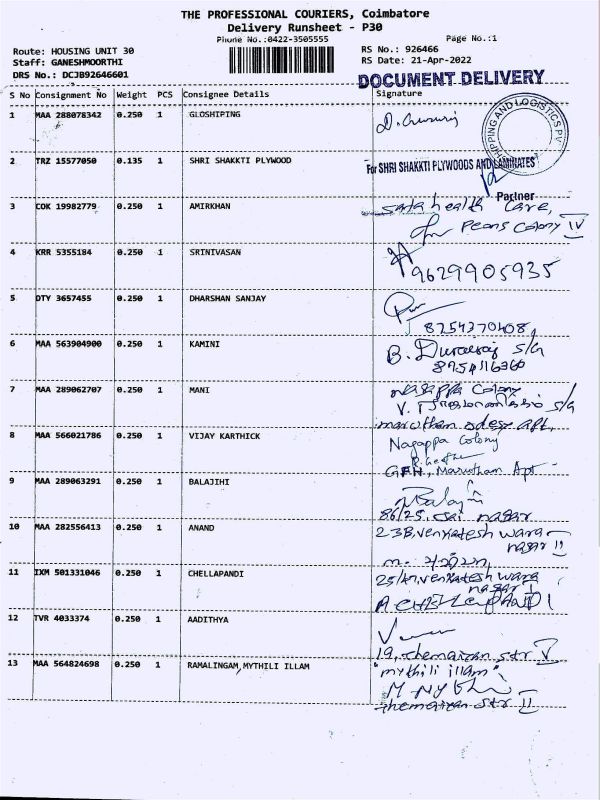 THE PROFESSIONAL COURIERS, Coimbatore
Delivery Runsheet - P30
Phone No.:0422-3505555
Page No.:1
Route: HOUSING UNIT 30
RS No.: 926466
Staff: GANESHMOORTHI
RS Date: 21-Apr-2022
DRS No.: DCJB92646601
DOCUMENT DELIVERY
S No Consignment No Weight PCS Consignee Details Signature
1 MAA 288078342 0.250 1 GLOSHIPING
SHIPPING AND LOGISTICS PV
2 TRZ 15577050 0.135 1 SHRI SHAKKTI PLYWOOD
For SHRI SHAKKTI PLYWOODS AND LAMINATES
Partner
3 COK 19982779 0.250 1 AMIRKHAN
health Care,
Peons Colony IV
4 KRR 5355184 0.250 1 SRINIVASAN
9629905935
5 DTY 3657455 0.250 1 DHARSHAN SANJAY
8254370408,
6 MAA 563904900 0.250 1 KAMINI
B. Durairaj S/o
7 MAA 289062707 0.250 1 MANI
Nagappa Colony
8 MAA 566021786 0.250 1 VIJAY KARTHICK
Nagappa Colony
GFH, Marutham Apt
9 MAA 289063291 0.250 1 BALAJIHI
Balaji
86/25, Sai nagar
10 MAA 282556413 0.250 1 ANAND
23B, Venkatesh wara
nagar II
11 IXM 501331046 0.250 1 CHELLAPANDI
Venkatesh wara
nagar I
12 TVR 4033374 0.250 1 AADITHYA
13 MAA 564824698 0.250 1 RAMALINGAM,MYTHILI ILLAM
19, themaizan str V
"mythili illam"
themaizan str II